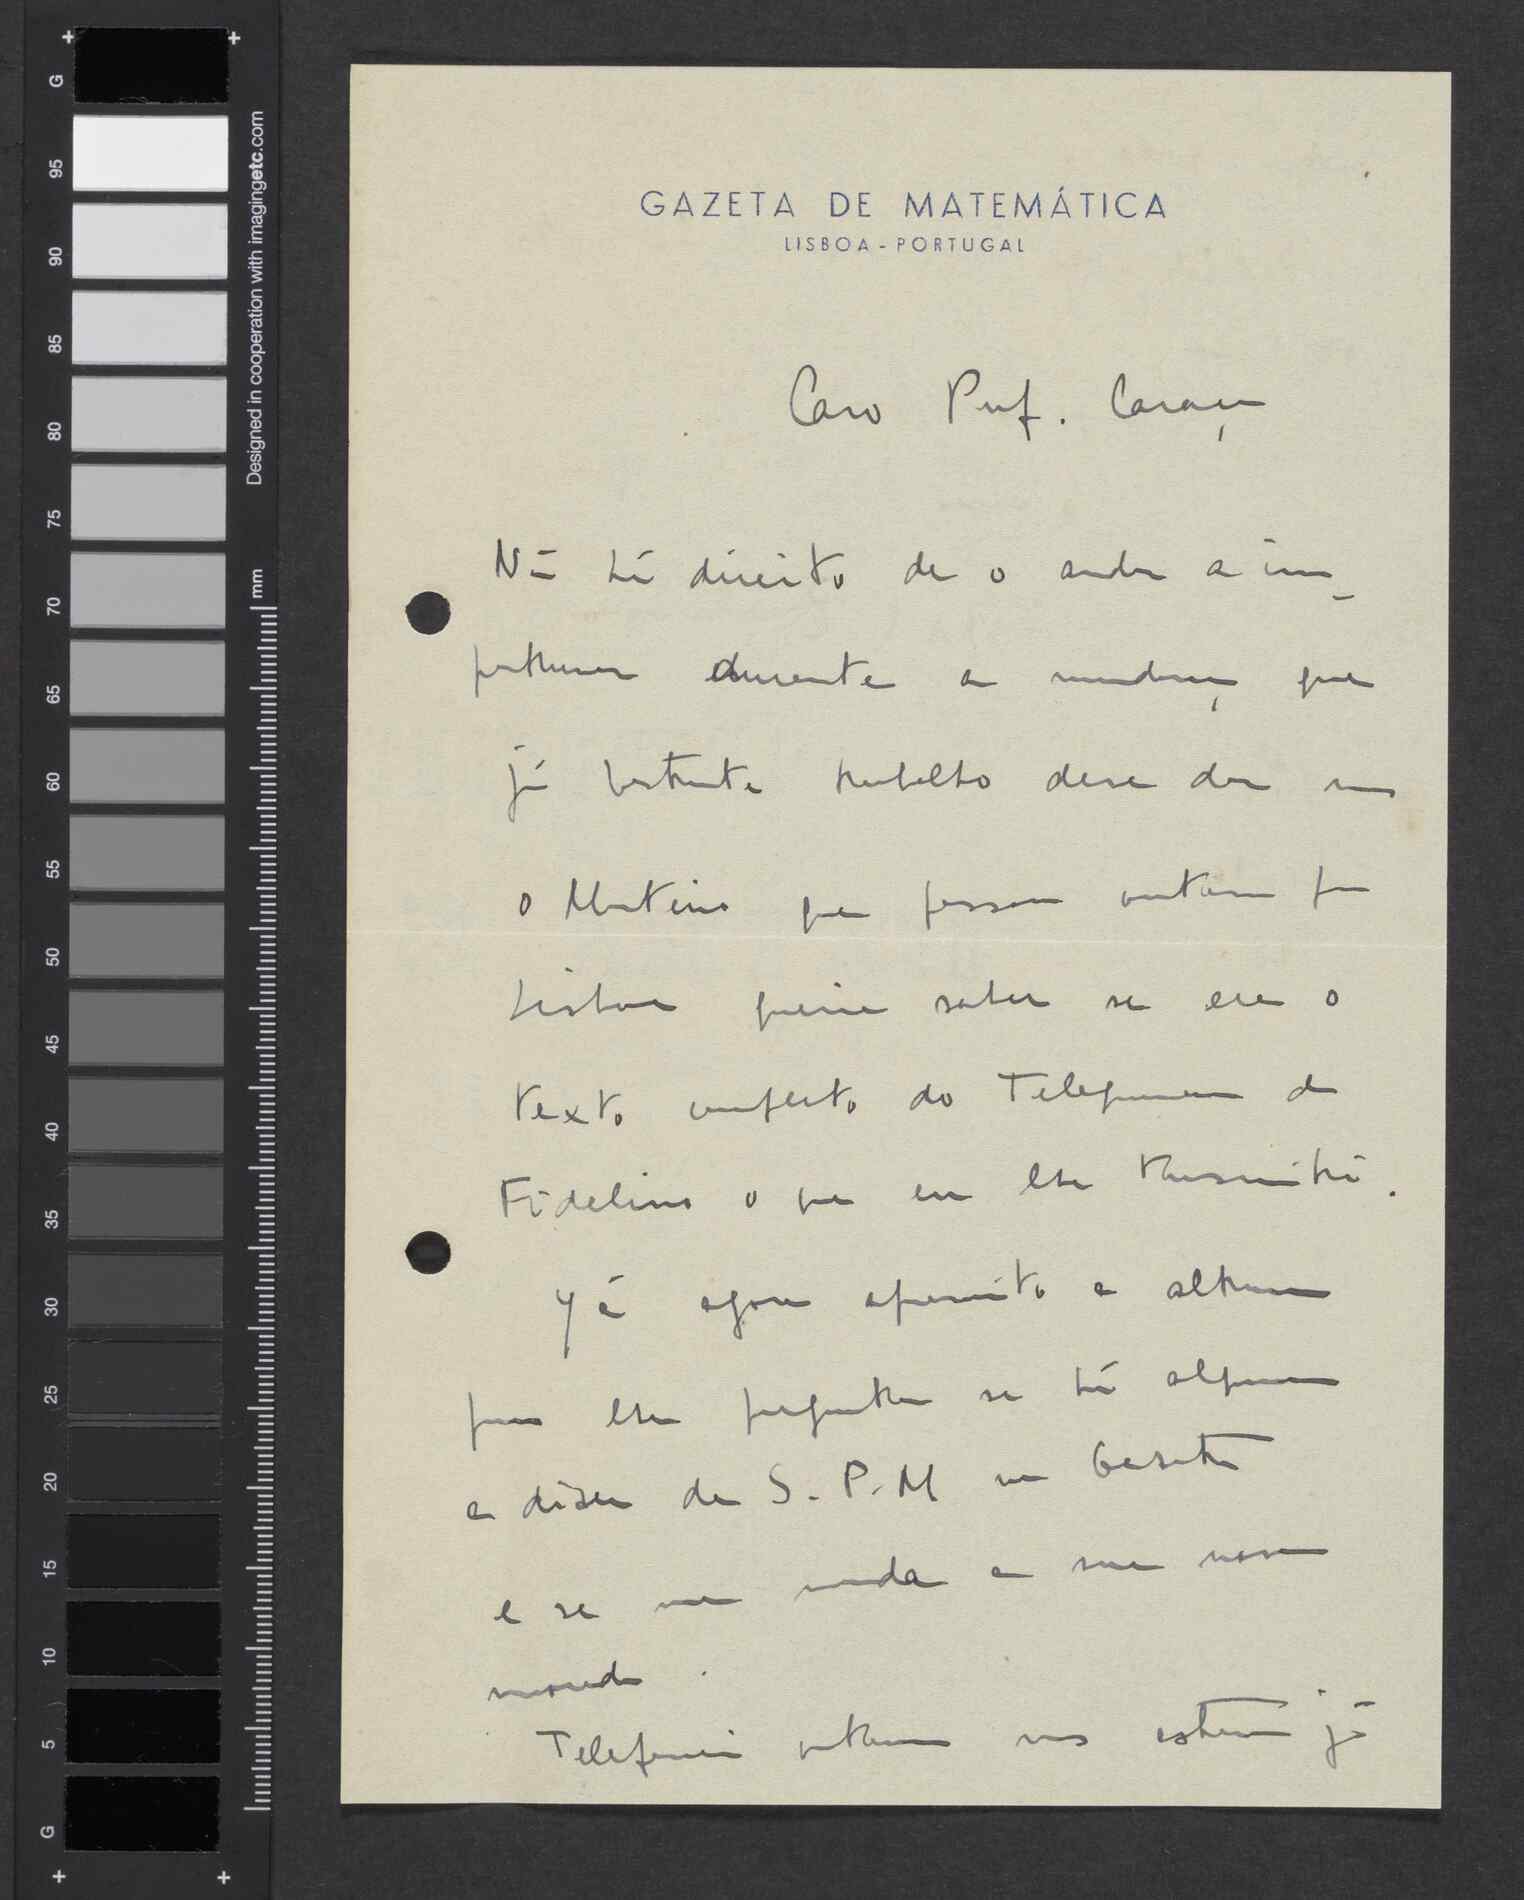 GAZETA DE MATEMÁTICA
LISBOA - PORTUGAL
Caro Prof. Caraça
Não há direito de o andar a im-
portunar durante a mudança que
já bastante trabalho deve dar mas
o Monteiro que passou ontem por
Lisboa queria saber se era o
texto completo do Telegrama do
Fidelino o que eu lhe transmiti.
Já agora aproveito a altura
para lhe perguntar se há alguma
a dizer da S.P.M na Gazeta
e se me manda a sua nova
morada.
Telefonei ontem mas estava já
Designed in cooperation with imagingetc.com
mm
G
95
90
85
80
75
70
65
60
55
50
45
40
35
30
25
20
15
10
5
G